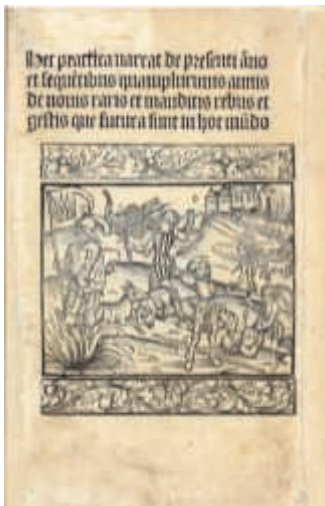 Hec practica narrat de presenti ãno
et sequẽtibus quamplurimis annis
de nouis raris et inauditis rebus et
gestis que futura sunt in hoc mũdo